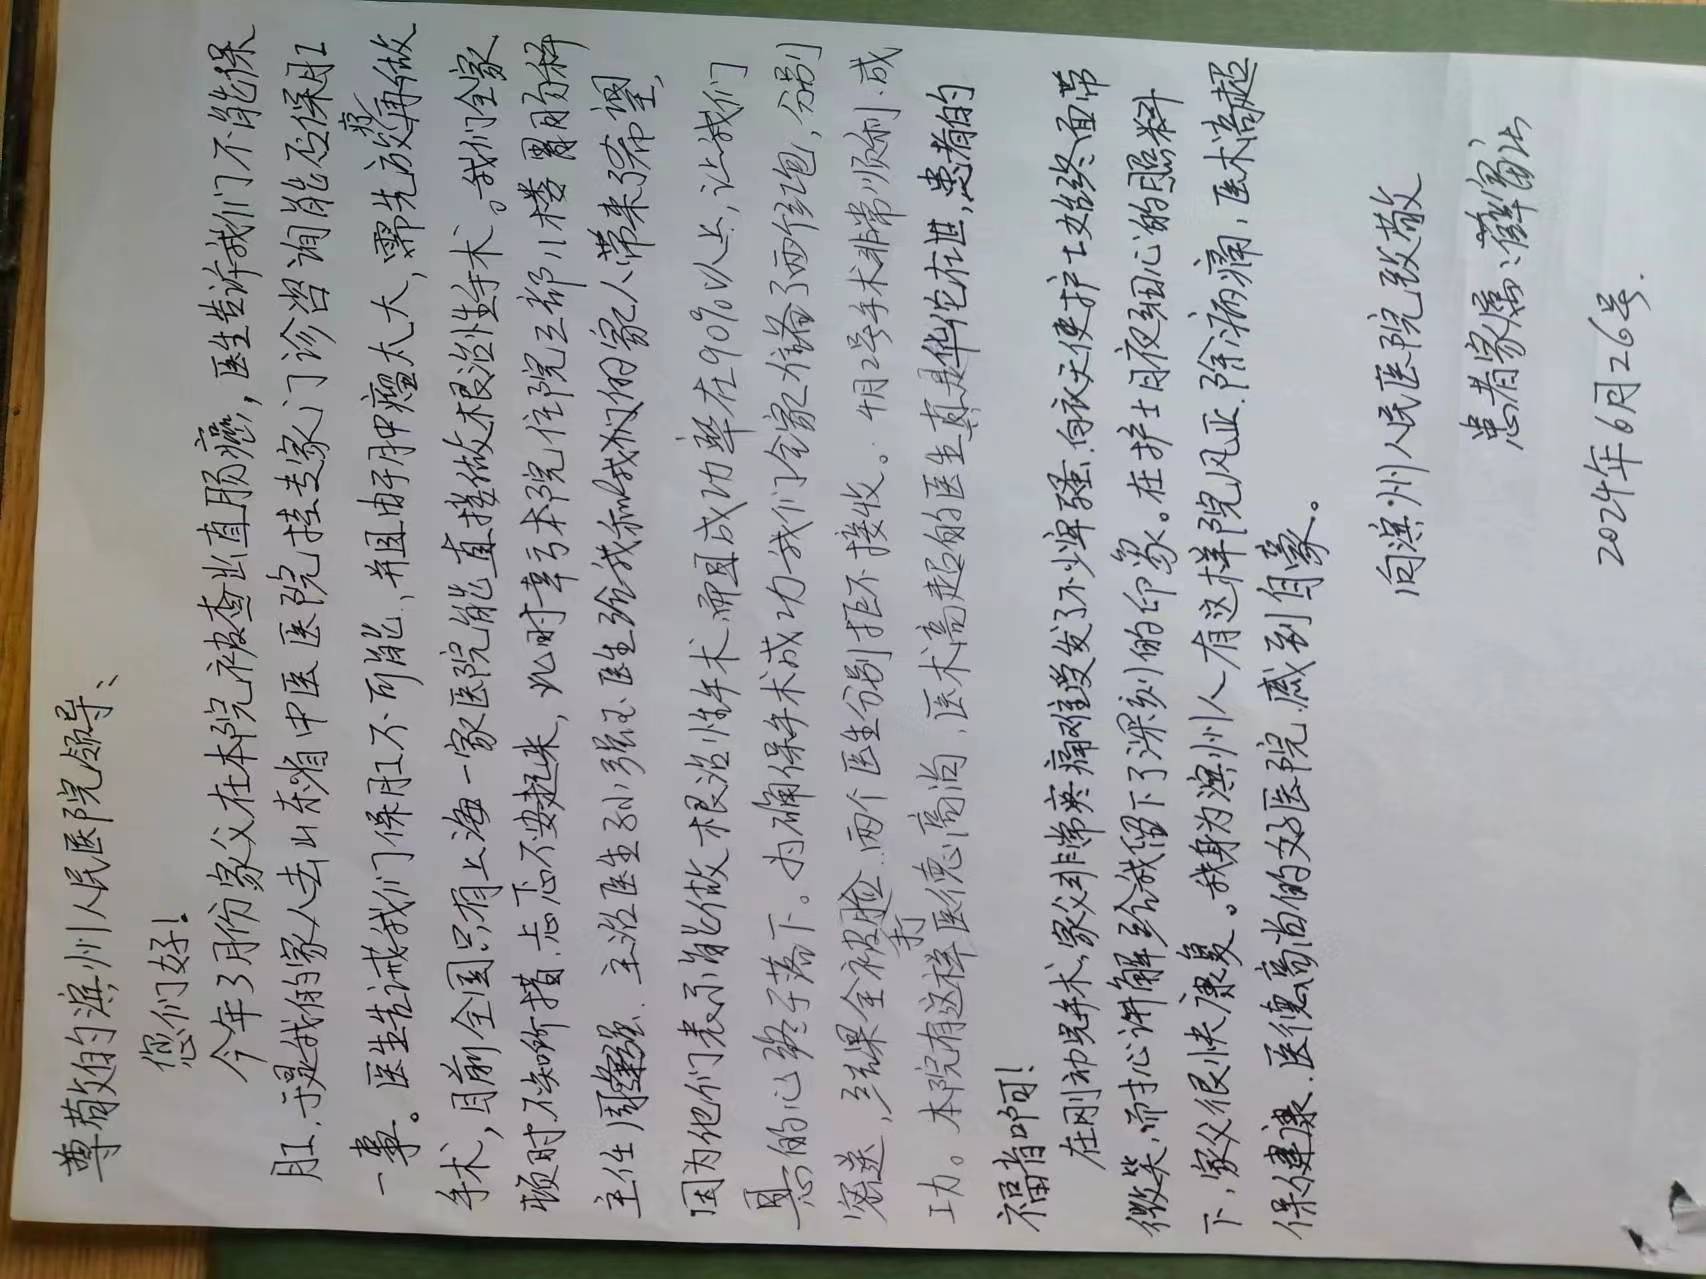 尊敬的滨州人民医院领导：
您们好！
今年3月份家父在本院被查出直肠癌，医生告诉我们不能保
肛，于是我的家人去山东省中医医院挂专家门诊咨询能否保肛
一事。医生告诫我们保肛不可能，并且由于肿瘤太大，需先放疗再做
手术，目前全国只有上海一家医院能直接做根治性手术。我们全家
顿时不知所措、忐忑不安起来，此时幸亏本院住院三部11楼胃肠科
主任周 强、主治医生孙强玉医生给我和我们的家人带来了希望，
因为他们表示能做根治性手术，而且成功率在90%以上，让我们
悬的心终于落下。为确保手术成功我们全家准备了两个红包，分别
密送，结果全被打脸，两个医生分别拒不接收。4月2号手术非常顺利、成
功。本院有这样医德高尚，医术高超的医生真是华佗在世，患者的
福音啊！
在刚动完手术，家父非常疼痛难受发了不少牢骚，白衣天使护士始终面带
微笑，耐心讲解给我留下了深刻的印象。在护士日夜细心的照料
下，家父很快康复。我身为滨州人有这样院风正、除病痛，医术高超
保健康、医德高尚的好医院，感到自豪。
向滨州人民医院致敬
患者家属：薛富
2024年6月26号.